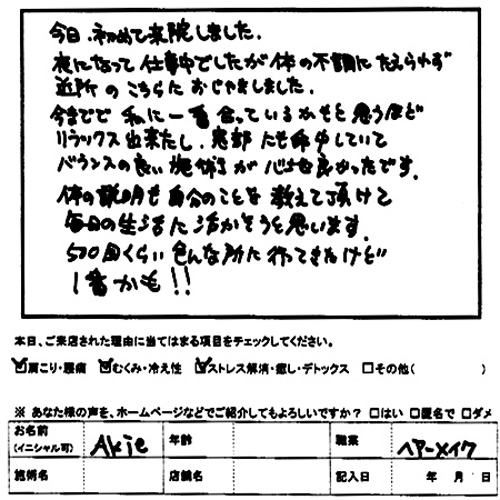 今日、初めて来院しました。
夜になって仕事中でしたが体の不調にたえられず
近所のこちらにおじゃましました。
今までで私に一番合っているかもと思うほど
リラックス出来たし、患部にも命中していて
バランスの良い施術が心地良かったです。
体の説明も自分のことを教えて頂けて
毎日の生活に活かそうと思います。
500回くらい色んな所に行ってきたけど
1番かも!!
本日、ご来店された理由に当てはまる項目をチェックしてください。
☑肩こり・腰痛 ☑むくみ・冷え性 ☑ストレス解消・癒し・デトックス □その他( )
※ あなた様の声を、ホームページなどでご紹介してもよろしいですか? □はい □匿名で □ダメ
お名前 (イニシャル可) Akie 年齢 職業 ヘアーメイク
施術名 店舗名 記入日 年 月 日